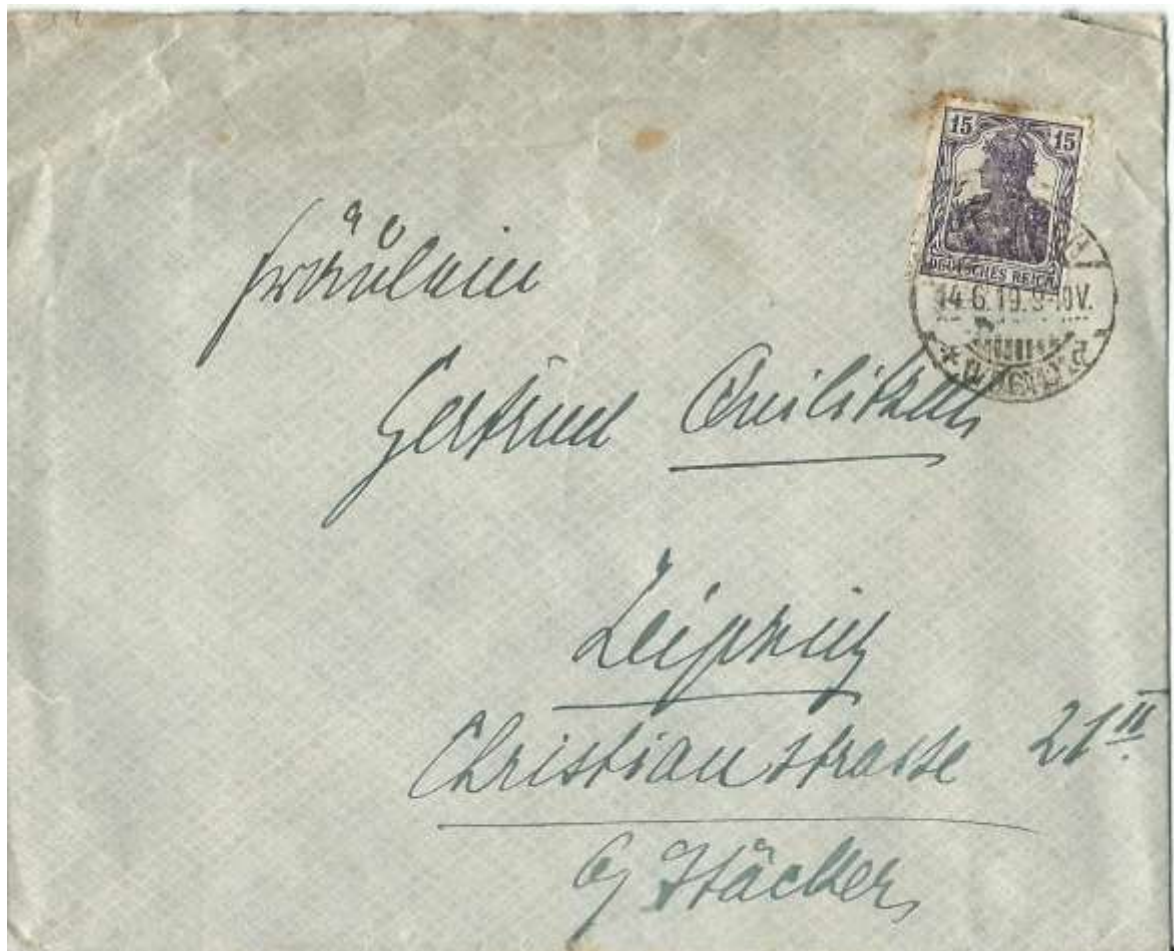 15 15
DEUTSCHES REICH
14.6.19.9-10V.
Fräulein
Gertrud
Leipzig
Christianstrasse 21 II.
b/ Häcker